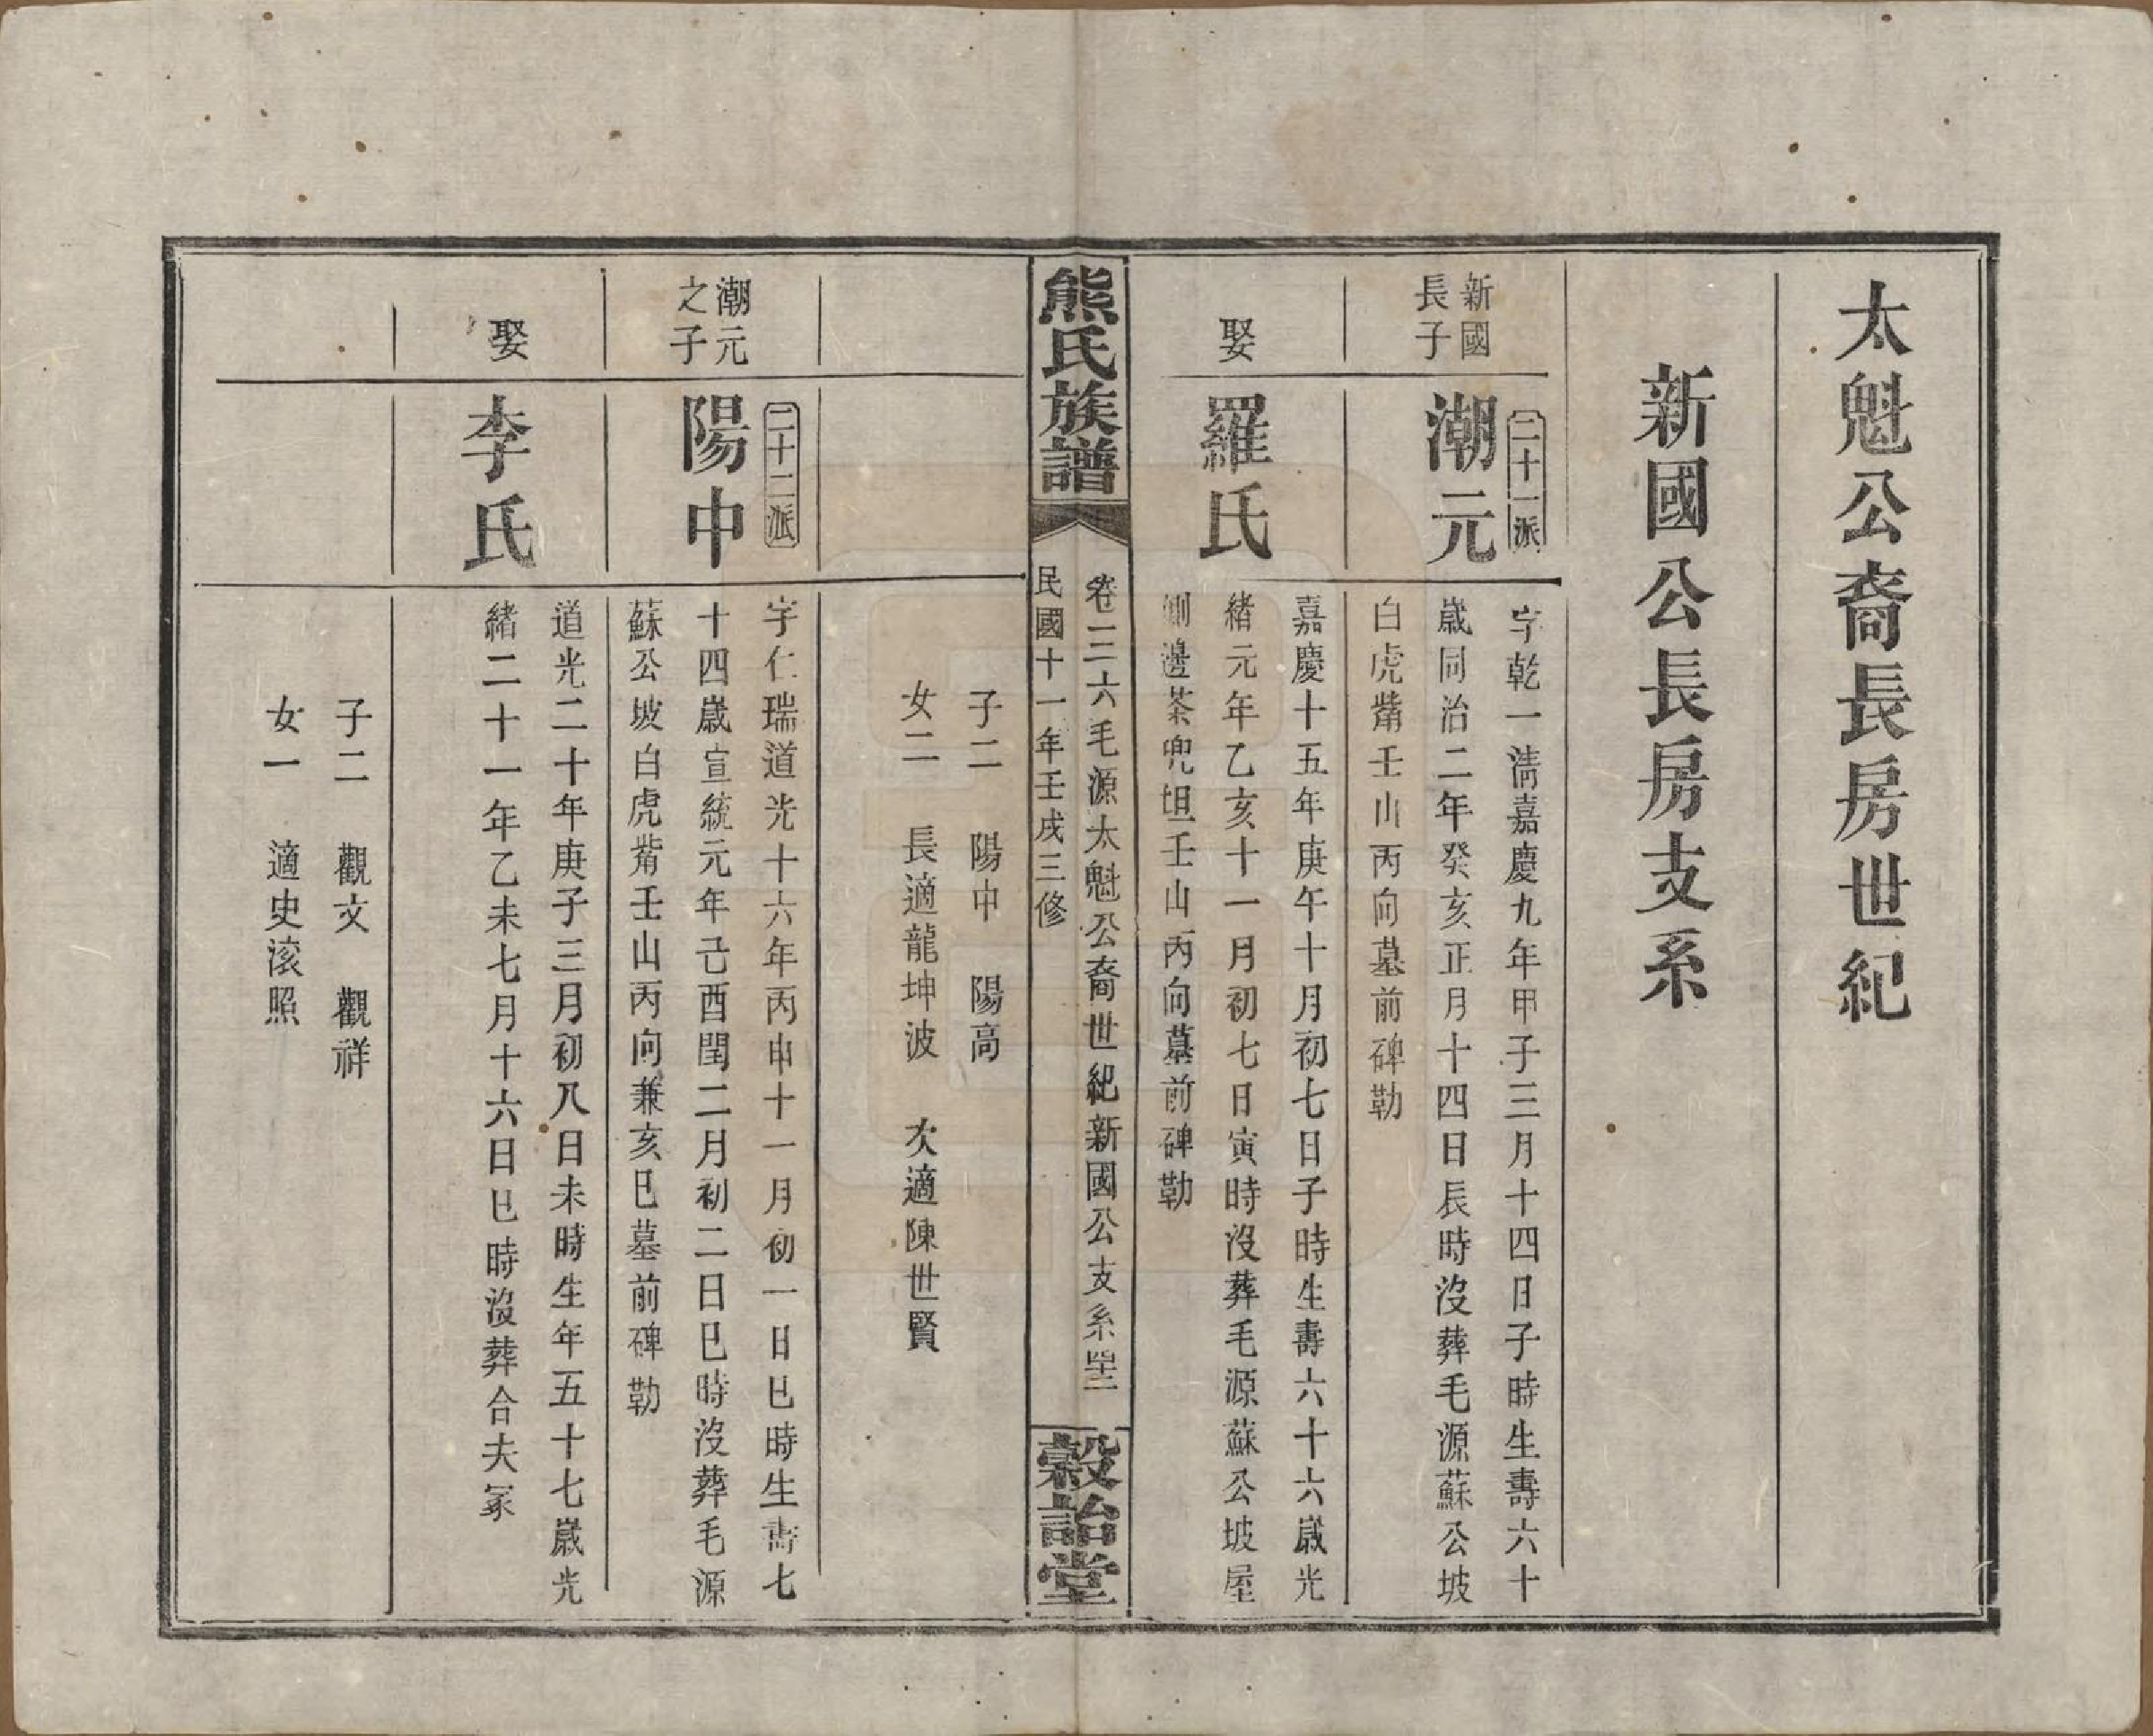 太魁公裔長房世紀
新國公長房支系
新國
長子
二十一派
潮元
字乾一清嘉慶九年甲子三月十四日子時生壽六十
歲同治二年癸亥正月十四日辰時沒葬毛源蘇公坡
白虎觜壬山丙向墓前碑勒
娶
羅氏
嘉慶十五年庚午十月初七日子時生壽六十六歲光
緒元年乙亥十一月初七日寅時沒葬毛源蘇公坡屋
側邊茶兜坦壬山丙向墓前碑勒
熊氏族譜
卷二六毛源太魁公裔世紀新國公支系
民國十一年壬戌三修
穀詒堂
子二 陽中 陽高
女二 長適龍坤波 次適陳世賢
潮元
之子
二十二派
陽中
字仁瑞道光十六年丙申十一月初一日巳時生壽七
十四歲宣統元年己酉閏二月初二日巳時沒葬毛源
蘇公坡白虎觜壬山丙向兼亥巳墓前碑勒
娶
李氏
道光二十年庚子三月初八日未時生年五十七歲光
緒二十一年乙未七月十六日巳時沒葬合夫冢
子二 觀文 觀祥
女一 適史滚照